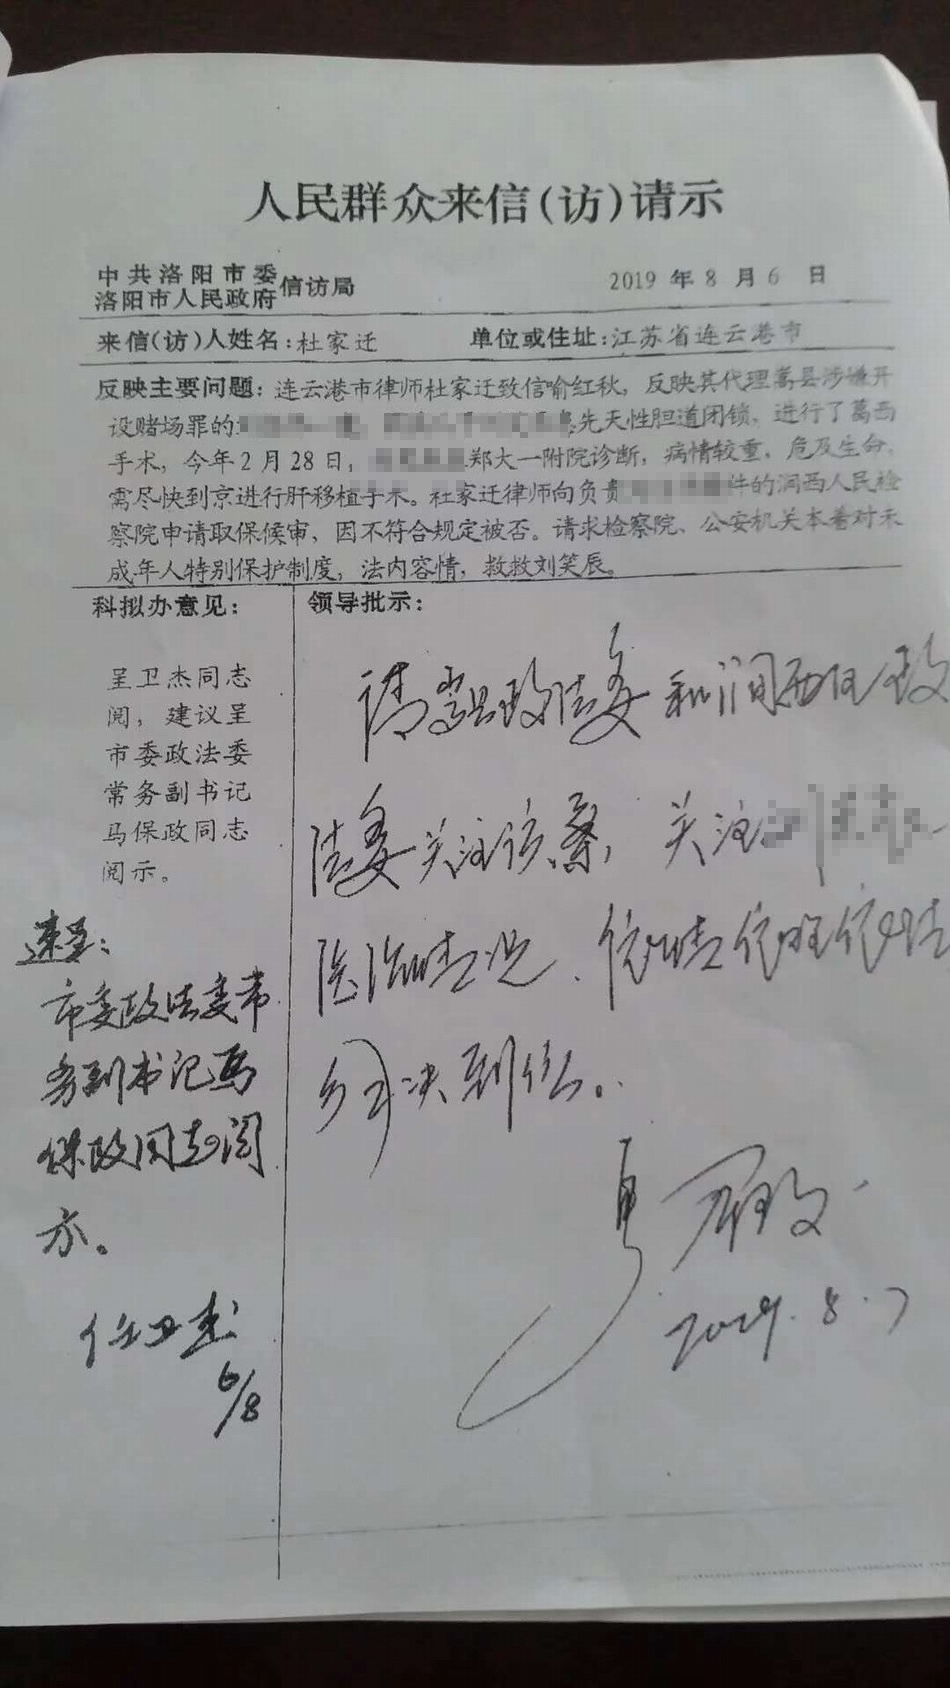 人民群众来信(访)请示
中共洛阳市委
洛阳市人民政府
信访局
2019 年 8 月 6 日
来信(访)人姓名:杜家迁 单位或住址:江苏省连云港市
反映主要问题:连云港市律师杜家迁致信喻红秋,反映其代理嵩县涉嫌开
设赌场罪的 先天性胆道闭锁,进行了葛西
手术,今年2月28日, 郑大一附院诊断,病情较重,危及生命,
需尽快到京进行肝移植手术。杜家迁律师向负责 件的涧西人民检
察院申请取保候审,因不符合规定被否。请求检察院、公安机关本着对未
成年人特别保护制度,法内容情,救救刘笑辰。
科拟办意见:
呈卫杰同志
阅,建议呈
市委政法委
常务副书记
马保政同志
阅示。
速呈:
市委政法委常
务副书记马
保政同志阅
示。
任卫杰
6/8
领导批示:
请嵩县政法委和涧西区政
法委关注该案,关注
医治情况、依情依理依法
解决到位。
马保政
2019.8.7